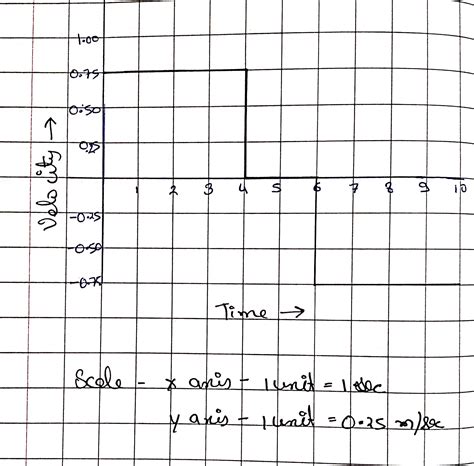 1.00
0.75
0.50
0.25
Velocity →
1 2 3 4 5 6 7 8 9 10
-0.25
-0.50
-0.75
Time →
Scale - x axis - 1 unit = 1 sec
y axis - 1 unit = 0.25 m/sec